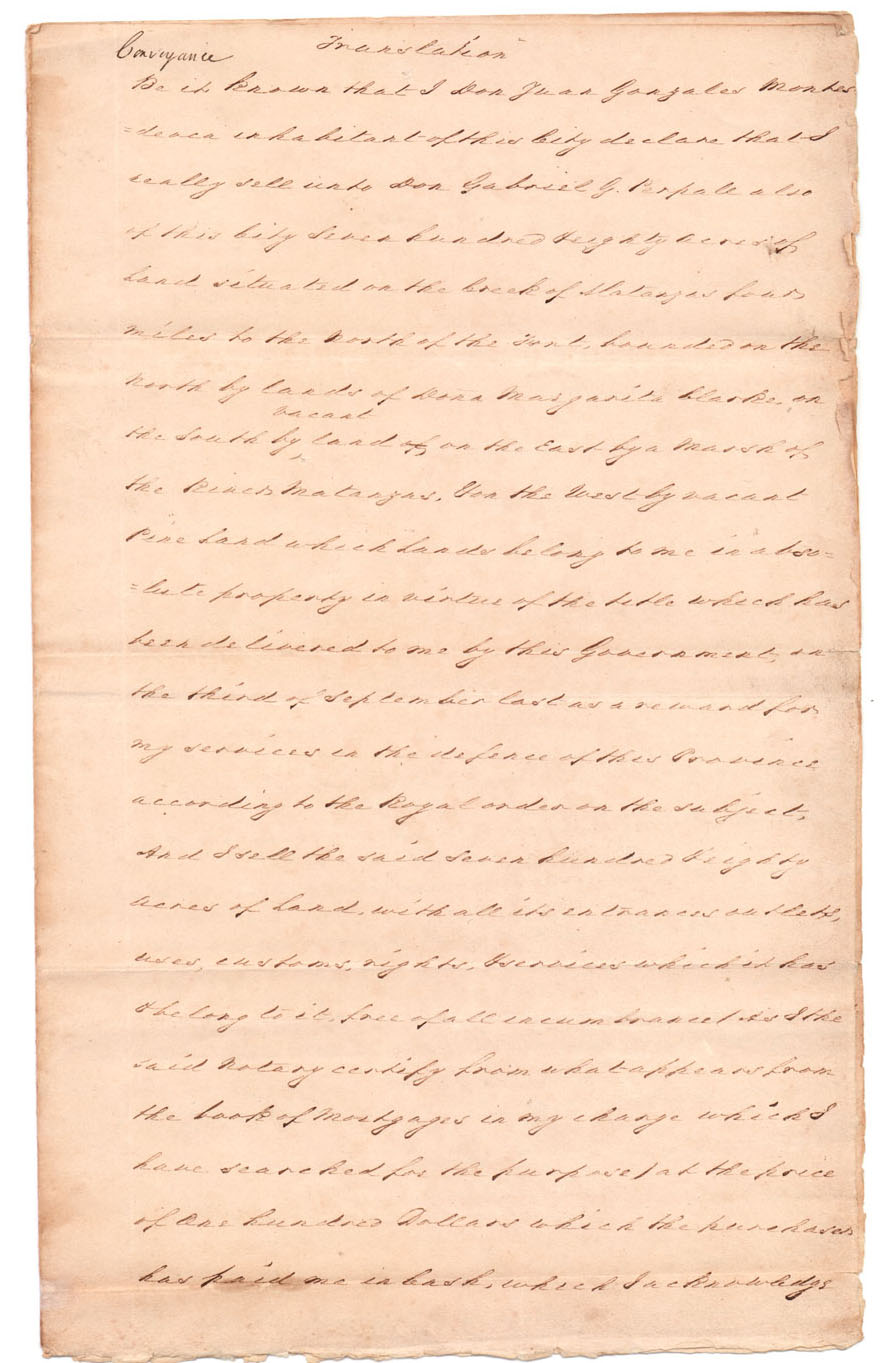 Conveyance Translation
Be it known that I Don Juan Gonzales Montes
=deoca inhabitant of this City declare that I
really sell unto Don Gabriel G. Perpale also
of this City Seven hundred & eighty acres of
Land situated on the Creek of Matanzas four
miles to the North of the Fort, bounded on the
North by lands of Dona Margarita Clarke, on
vacant
the South by land of on the East by a Marsh of
the River Matanzas, & on the West by vacant
Pine Land which Lands belong to me in abso=
=lute property in virtue of the title which has
been delivered to me by this Government, on
the third of September last as a reward for
my services in the defence of this Province
according to the Royal order on the subject,
And I sell the said Seven hundred & eighty
acres of Land, with all its entrances outlets,
uses, customs, rights, & services which it has
& belong to it, free of all incumbrance (as I the
said Notary certify from what appears from
the book of Mortgages in my charge which I
have searched for the purpose) at the price
of One hundred Dollars which the purchaser
has paid me in Cash, which I acknowledge